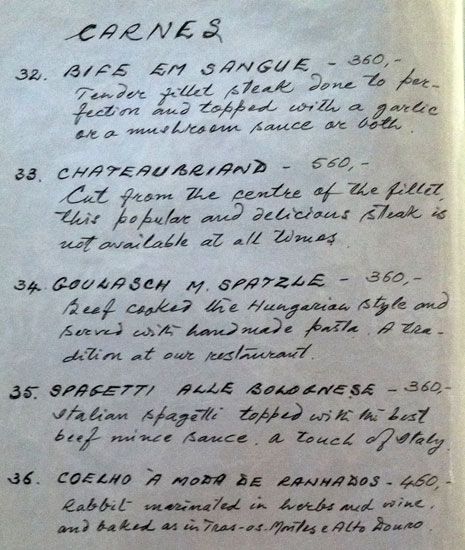 CARNES
32. BIFE EM SANGUE - 360,-
Tender fillet steak done to per-
fection and topped with a garlic
or a mushroom sauce or both.
33. CHATEAUBRIAND - 560,-
Cut from the centre of the fillet,
this popular and delicious steak is
not available at all times.
34. GOULASCH M. SPATZLE - 360,-
Beef cooked the Hungarian style and
served with handmade pasta. A tra-
dition at our restaurant.
35. SPAGETTI ALLE BOLOGNESE - 360,-
Italian spagetti topped with the best
beef mince sauce. a touch of Italy.
36. COELHO À MODA DE RANHADOS - 460,-
Rabbit marinated in herbs and wine,
and baked as in Tras-os-Montes e Alto Douro.